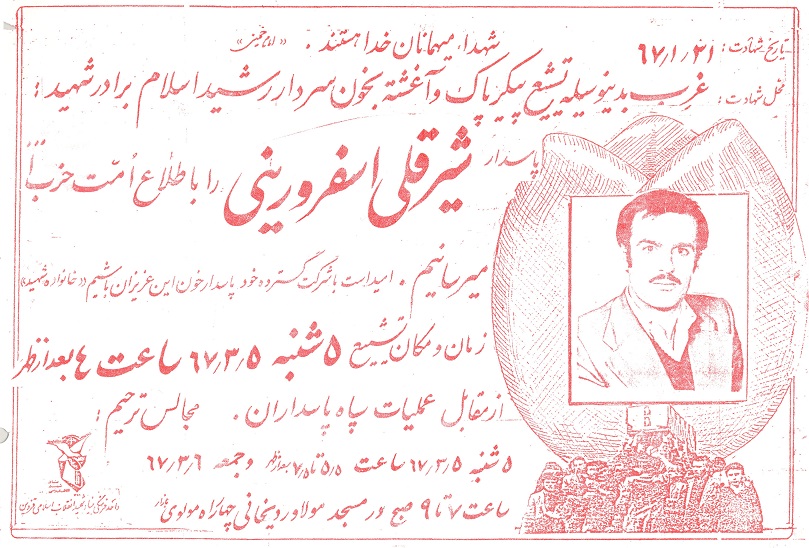 شهدا، میهمانان خدا هستند . «امام خمینی»
تاریخ شهادت : ۶۷/۱/۳۱
محل شهادت : غرب
بدینوسیله تشیع پیکر پاک و آغشته بخون سردار رشید اسلام برادر شهید :
پاسدار شیرقلی اسفرورینی را باطلاع اُمّت حزب الله
میرسانیم . امید است با شرکت گسترده خود پاسدار خون این عزیزان باشیم «خانواده شهید»
زمان و مکان تشییع ۵ شنبه ۶۷,۳,۵ ساعت ٤ بعد از ظهر
از مقابل عملیات سپاه پاسداران . مجالس ترحیم :
۵ شنبه ۶۷,۳,۵ ساعت ۵/۵ تا ۷/۵ بعد از ظهر و جمعه ۶۷,۳,۶
ساعت ۷ تا ۹ صبح در مسجد مولاوردیخانی چهارراه مولوی
بنیاد شهید انقلاب اسلامی قزوین